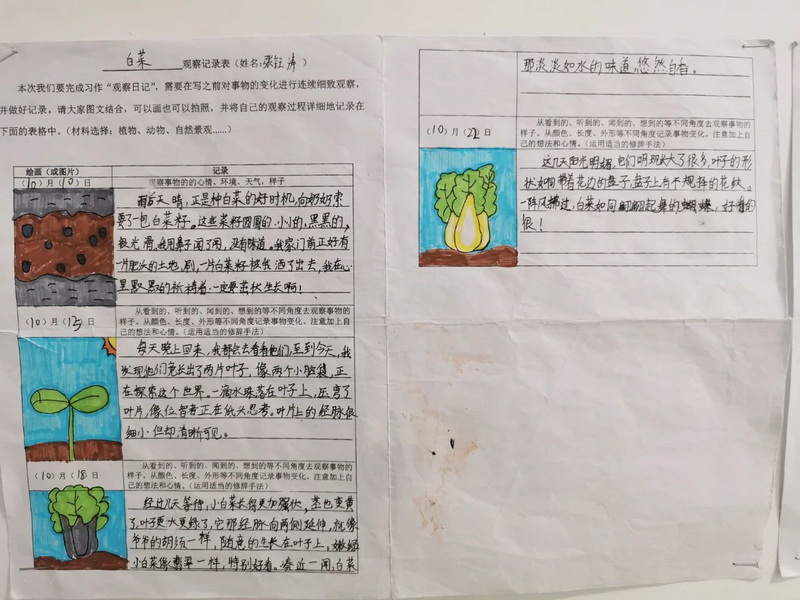 白菜 观察记录表（姓名：张钰涛）
本次我们要完成习作“观察日记”，需要在写之前对事物的变化进行连续细致观察，
并做好记录。请大家图文结合，可以画也可以拍照，并将自己的观察过程详细地记录在
下面的表格中。（材料选择：植物、动物、自然景观……）
绘画（或图片） 记录
（10）月（10）日 观察事物的的心情、环境、天气，样子
雨后天晴，正是种白菜的好时机，向奶奶索
要了一包白菜籽。这些菜籽圆圆的、小小的、黑黑的，
极光滑，我用鼻子闻了闻，没有味道。我家门前正好有
一片肥沃的土地，刷，一片白菜籽被我洒了出去，我在心
里默默的祈祷着：一定要茁状生长啊！
（10）月（12）日 从看到的、听到的、闻到的、想到的等不同角度去观察事物的
样子。从颜色、长度、外形等不同角度记录事物变化。注意加上自
己的想法和心情。（运用适当的修辞手法）
每天晚上回来，我都会去看看他们，至到今天，我
发现他们竟长出了两片叶子，像两个小脑袋，正
在探索这个世界。一滴水珠落在叶子上，压弯了
叶片，像位智者正在低头思考。叶片上的经脉很
细小但却清晰可见。
（10）月（18）日 从看到的、听到的、闻到的、想到的等不同角度去观察事物的
样子。从颜色、长度、外形等不同角度记录事物变化。注意加上自
己的想法和心情。（运用适当的修辞手法）
经过几天等待，小白菜长得更加强伙，茎也变黄
了，叶子更大更绿了，它那经脉向两侧延伸，就像
爷爷的胡须一样，随意的生长在叶子上，嫩绿
小白菜像翡翠一样，特别好看。凑近一闻，白菜
那淡淡如水的味道，悠然自香。
（10）月（22）日 从看到的、听到的、闻到的、想到的等不同角度去观察事物的
样子。从颜色、长度、外形等不同角度记录事物变化。注意加上自
己的想法和心情。（运用适当的修辞手法）
这几天阳光明媚，它们明显大了很多，叶子的形
状如同带着花边的盘子，盘子上有不规择的花纹。
一阵风拂过，白菜如同翩翩起舞的蝴蝶，好看的
很！